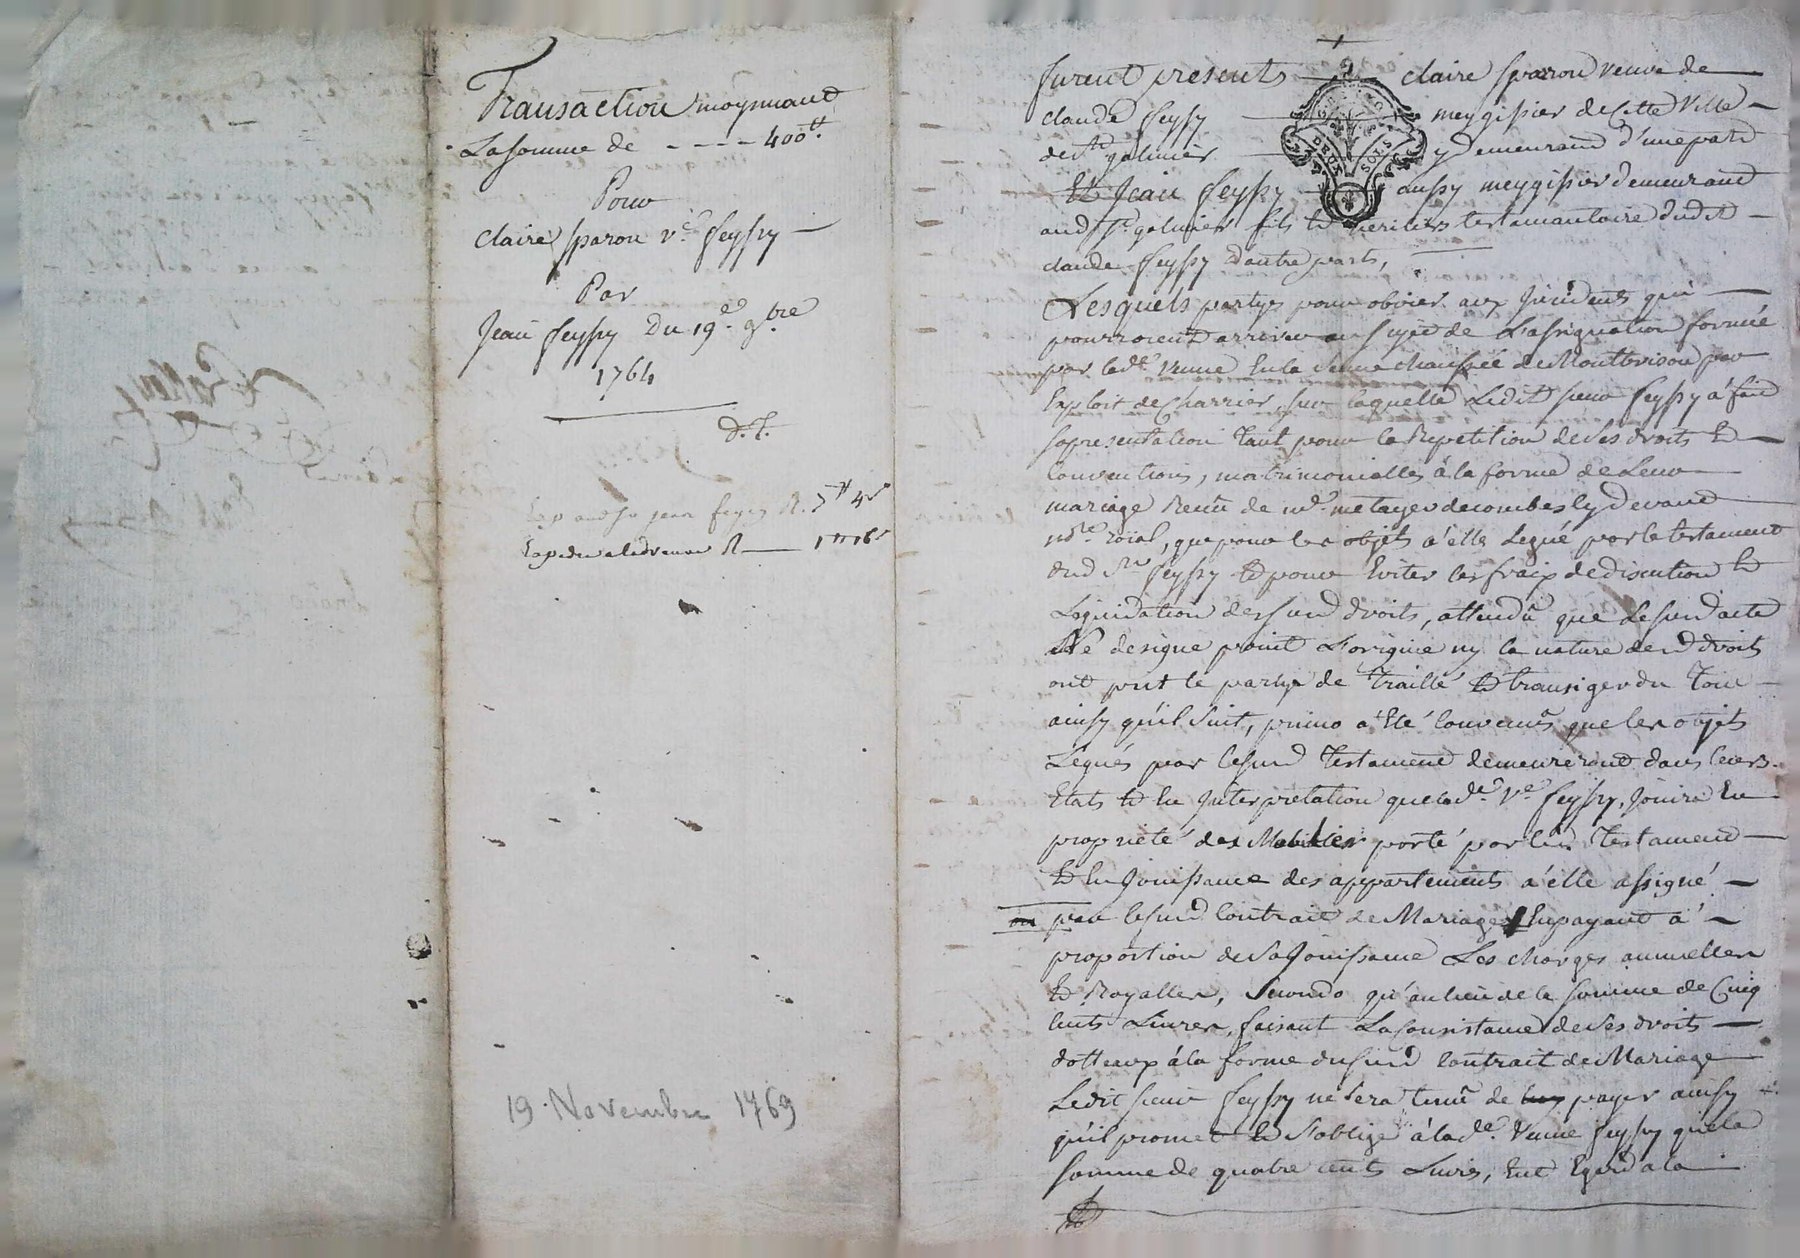 Transaction moyennant
La somme de - - - - 400tt.
Pour
Claire sparon ve. feyssy
Par
Jean feyssy Du 19e. 9bre
1764
d. t.
jean feyssy R. 5tt 4s
Exped. a lad. veuve R 1tt 16s
19 Novembre 1769
furent presents claire sparon veuve de
claude feyssy meygissier de Cette Ville
de st galmier y demeurant d'une part
Et Jean feyssy aussy meygissier demeurant
aud st. galmier fils et heritier testamantaire dudit
claude feyssy d'autre part,
Lesquels partyes pour obvier aux Incidents qui
pourroient arriver au sujet de L'assignation formée
par lade. veuve En la Senechaussée de Montbrison par
Exploit de Charrier, sur laquelle Ledit sieur feyssy a fait
sa presentation tant pour la Repetition de ses droits et
Conventions, matrimonielles à la forme de Leur
mariage Recu de me. metayer decombes ly devant
nore. roial, que pour les objets a elle Legué par le testament
dud sr. feyssy et pour Eviter les fraix de discution et
Liquidation desd sus droits, attendu que le susd acte
Ne designe point L'origine ny la nature desd droits
ont prit le partye de traitté et transiger du tout
ainsy qu'il suit, primo a Eté Convenu que les objets
Legués par le susd testament demeureront dans leurs
Etats et En Interpretation que lade. Ve. feyssy, Jouira En
propriété des Mobilier porté par led testament
et En Jouissance des appartements a elle assigné
par le susd. Contrait de Mariage En payant a
proportion de sa Jouissance Les charges annuelles
et Royalles, Secondo qu'au lieu de la somme de Cinq
Cents Livres, faisant La Consistance de ses droits
dotteaux à la forme du susd Contrait de Mariage
Ledit sieur feyssy ne sera tenu de payer ainsy
qu'il promet et s'oblige à lade. Veuve feyssy que la
somme de quatre cents Livres, Eut Egard a la